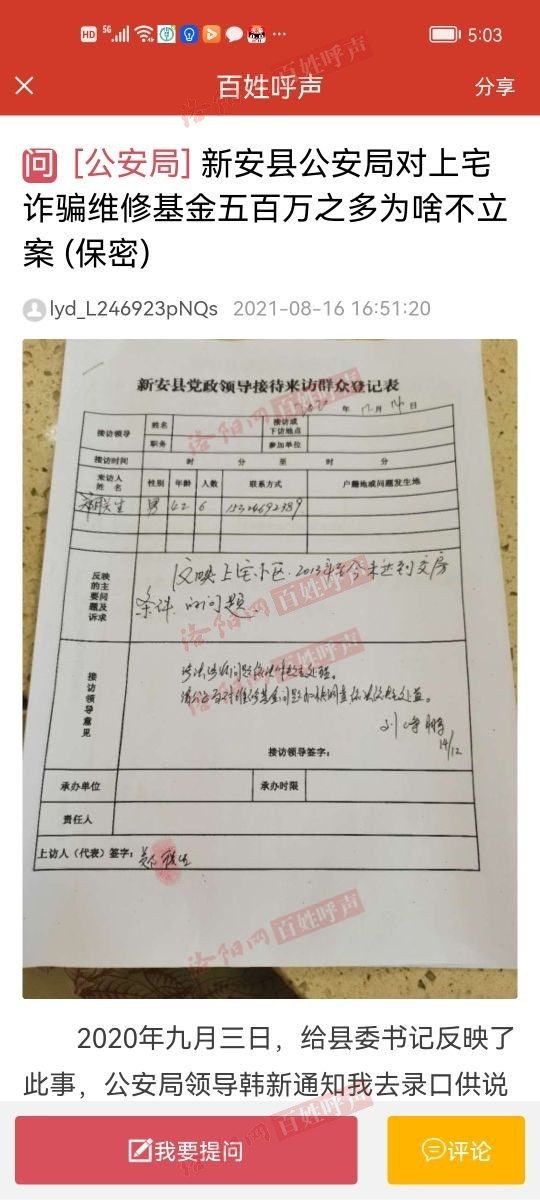 HD 5G 5:03
百姓呼声 分享
问 [公安局] 新安县公安局对上宅
诈骗维修基金五百万之多为啥不立
案 (保密)
lyd_L246923pNQs 2021-08-16 16:51:20
新安县党政领导接待来访群众登记表
2020 年 12 月 14 日
接访领导 姓名 接访或下访地点
职务 参加单位
接访时间 时 分 至 时 分
来访人姓名 性别 年龄 人数 联系方式 户籍地或问题发生地
男 42 6 15324692389
反映的主要问题及诉求
反映上宅小区2013年至今未达到交房
条件的问题.
接访领导意见
14/12
接访领导签字:
承办单位 承办时限
责任人
上访人(代表)签字:
洛阳网 百姓呼声
2020年九月三日，给县委书记反映了
此事，公安局领导韩新通知我去录口供说
我要提问 评论